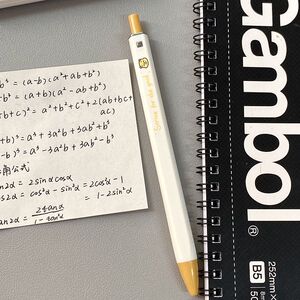 b³ = (a-b)(a²+ab+b²)
b³ = (a+b)(a²-ab+b²)
+b+c)² = a²+b²+c²+2(ab+bc+
ac)
+b)³ = a³+3a²b+3ab²+b³
-b)³ = a³-3a²b+3ab²-b³
角公式
n2α = 2sinαcosα
s2α = cos²α-sin²α = 2cos²α-1
= 1-2sin²α
2tanα
an2α =
1-tan²α
Gambol®
252mm×
B5
50